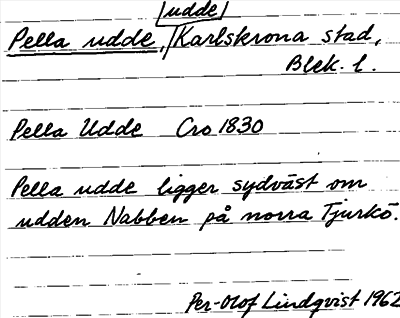 /udde/
Pella udde, Karlskrona stad,
Blek. l.
Pella Udde Cro 1830
Pella udde ligger sydväst om
udden Nabben på norra Tjurkö.
Per-Olof Lindqvist 1962